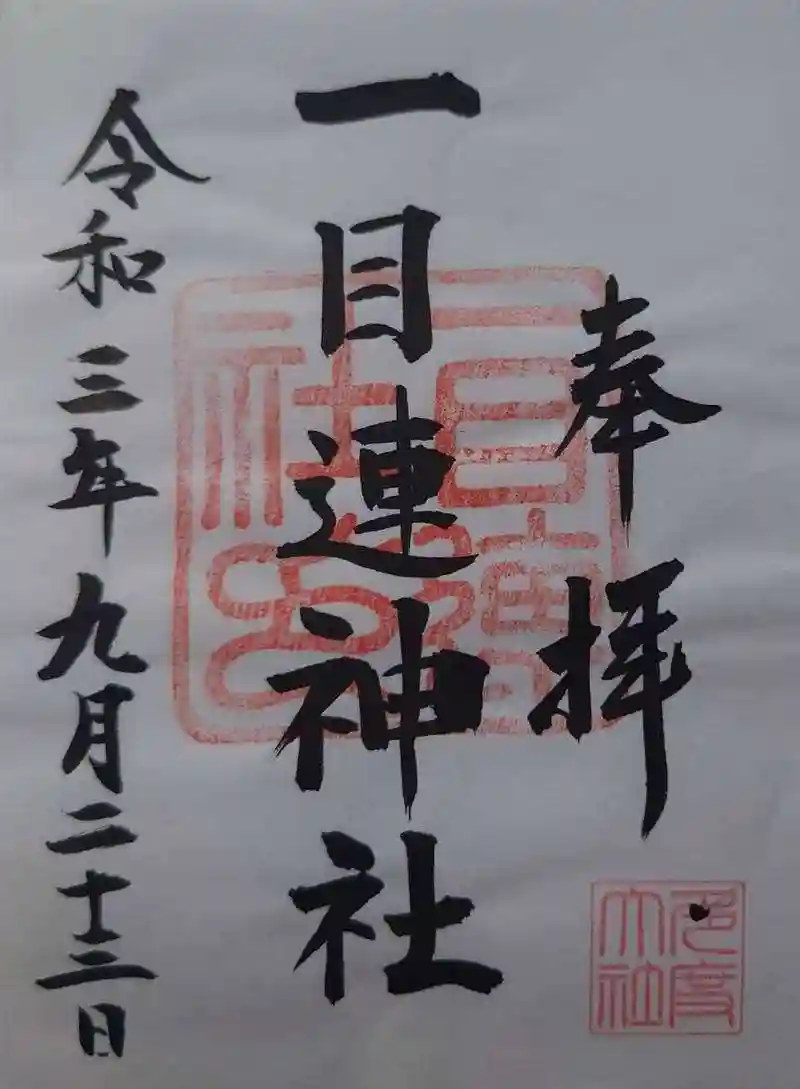 奉拝
一目連神社
令和三年九月二十三日
多度大社